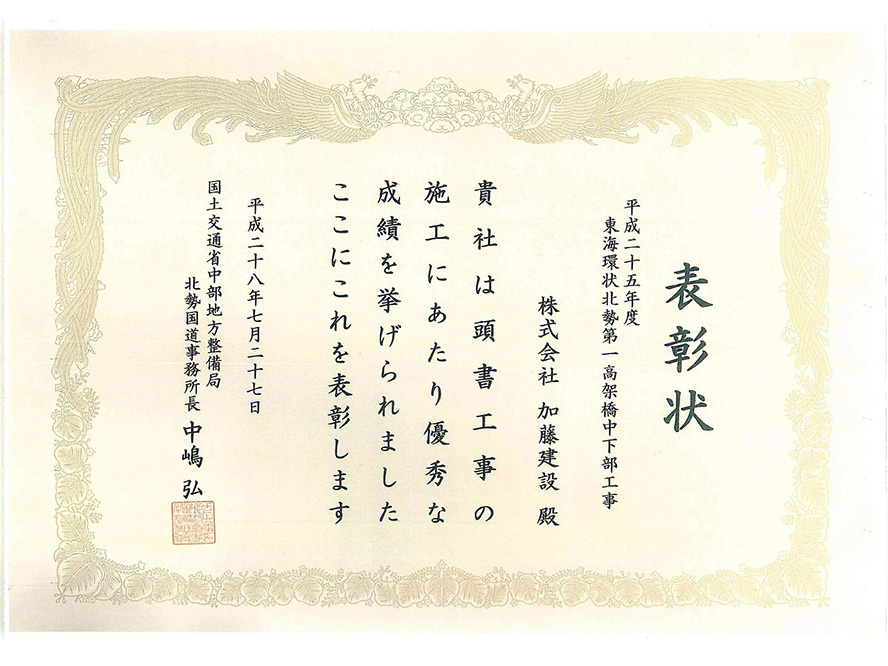 表彰状
平成二十五年度
東海環状北勢第一高架橋中下部工事
株式会社 加藤建設 殿
貴社は頭書工事の
施工にあたり優秀な
成績を挙げられました
ここにこれを表彰します
平成二十八年七月二十七日
国土交通省中部地方整備局
北勢国道事務所長 中嶋 弘